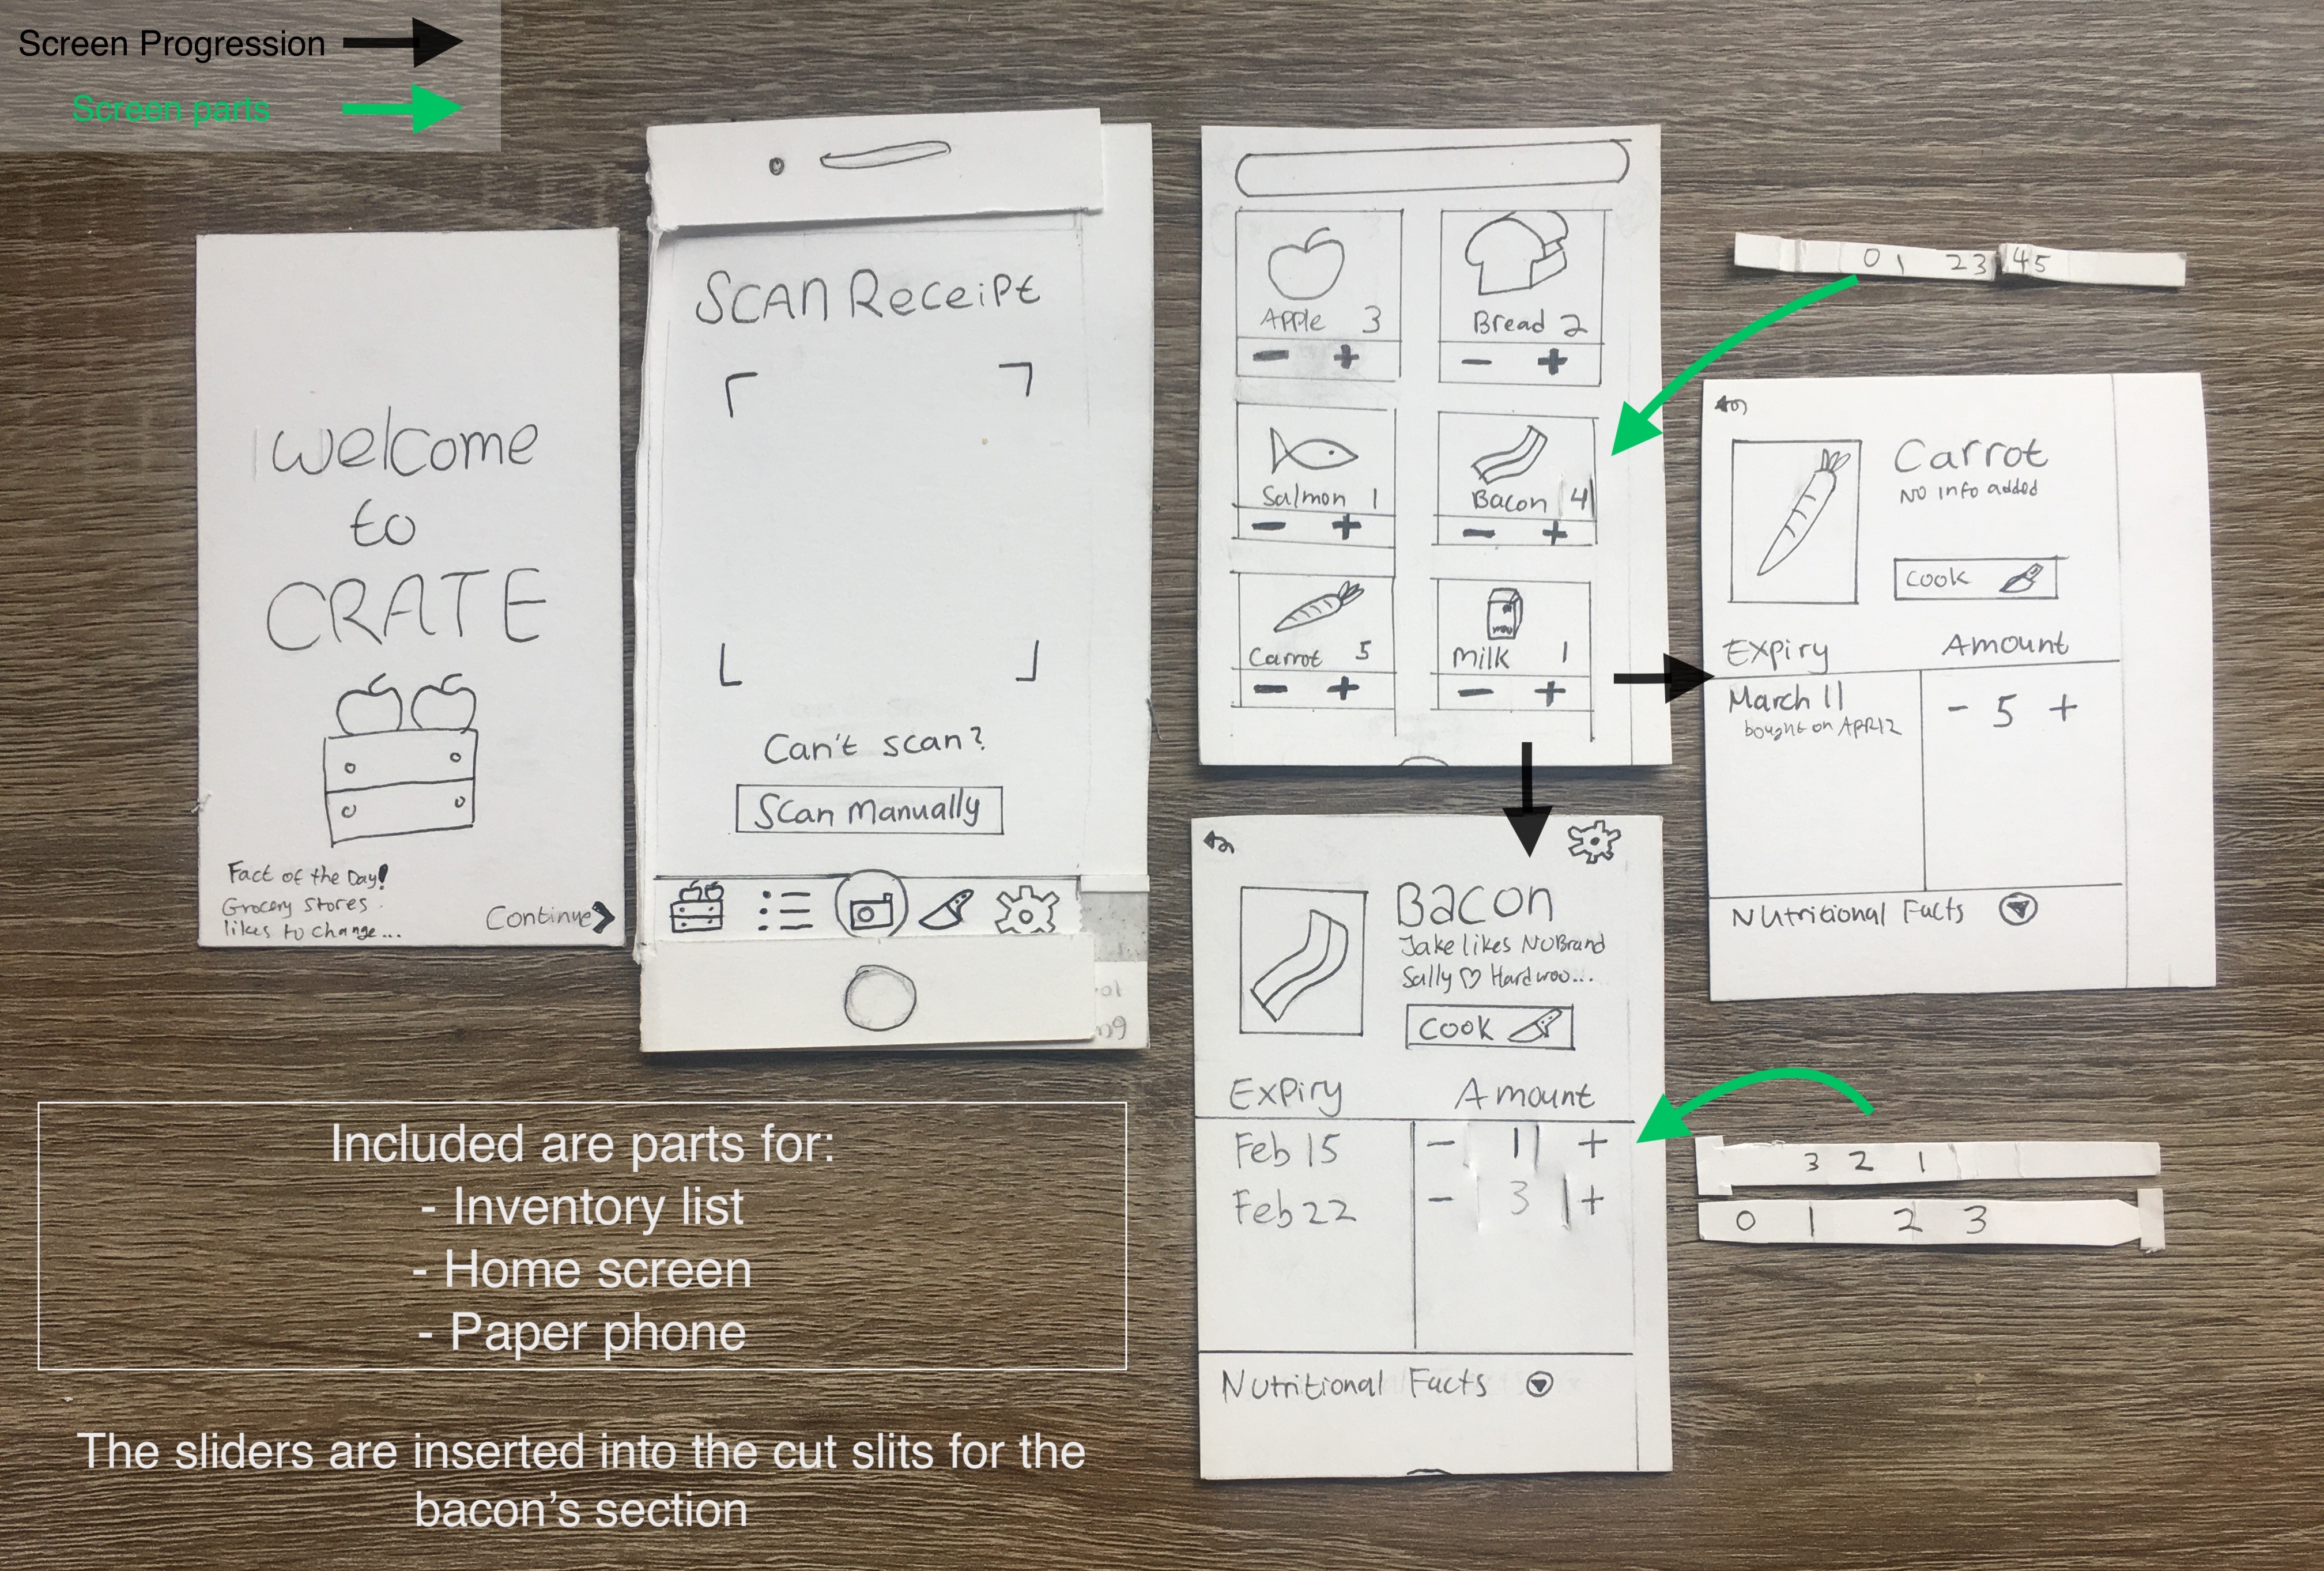 Screen Progression
Screen parts
Welcome
to
CRATE
Fact of the Day!
Grocery Stores
likes to change...
Continue
SCAN Receipt
Can't scan?
Scan Manually
Apple 3
Bread 2
- +
- +
Salmon 1
Bacon 4
- +
- +
Carrot 5
Milk 1
- +
- +
0 1 2 3 4 5
Carrot
No info added
Cook
Expiry Amount
March 11 - 5 +
bought on APR12
Nutritional Facts
Bacon
Jake likes NoBrand
Sally ♡ Hardwoo...
Cook
Expiry Amount
Feb 15 - 1 +
Feb 22 - 3 +
Nutritional Facts
3 2 1
0 1 2 3
Included are parts for:
- Inventory list
- Home screen
- Paper phone
The sliders are inserted into the cut slits for the
bacon's section